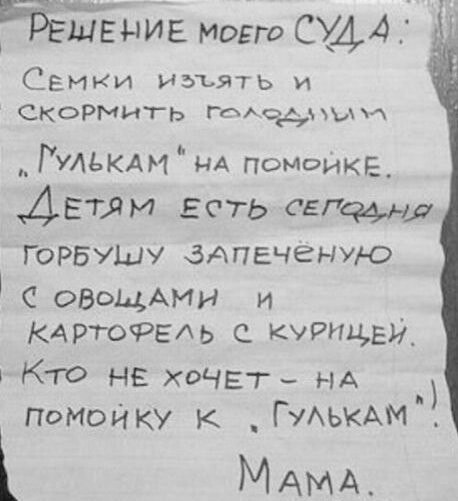 Решение моего СУДА:
Семки изъять и
скормить голодным
„Гулькам" на помойке.
Детям есть сегодня
горбушу запечёную
с овощами и
картофель с курицей.
Кто не хочет – на
помойку к „Гулькам"!
Мама.